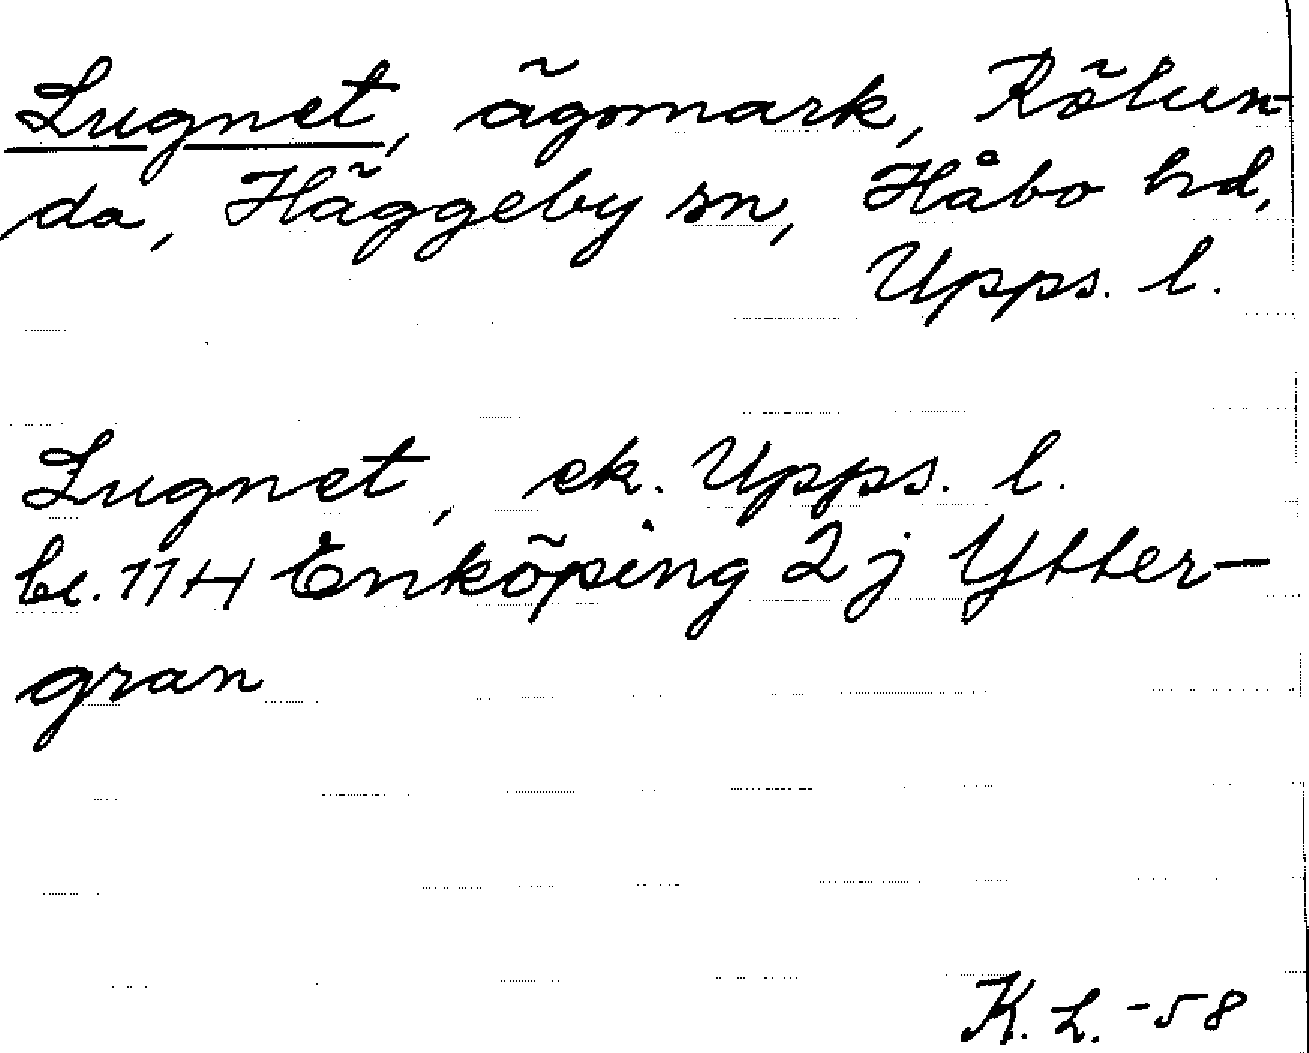 Lugnet, ägomark, Rölun-
da, Häggeby sn, Håbo hd,
Upps. l.
Lugnet, ek. Upps. l.
bl. 11H Enköping 2j Ytter-
gran
K. L. -58